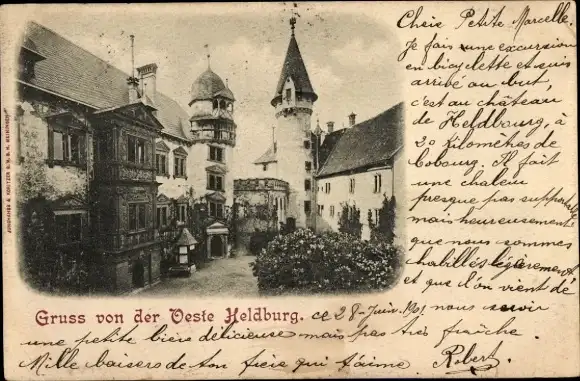 Cheie Petite Marcelle,
Je fais une excursion
en bicyclette et suis
arrivé au but,
c'est au château
de Heldbourg, à
20 kilomètres de
Cobourg. Il fait
une chaleur
presque pas support
mais heureusement
que nous sommes
habillés légèrement
et que l'on vient de
Gruss von der Veste Heldburg. ce 28 Juin 190 nous servir
une petite bière délicieuse mais pas très fraîche.
Mille baisers de ton frère qui t'aime Robert.